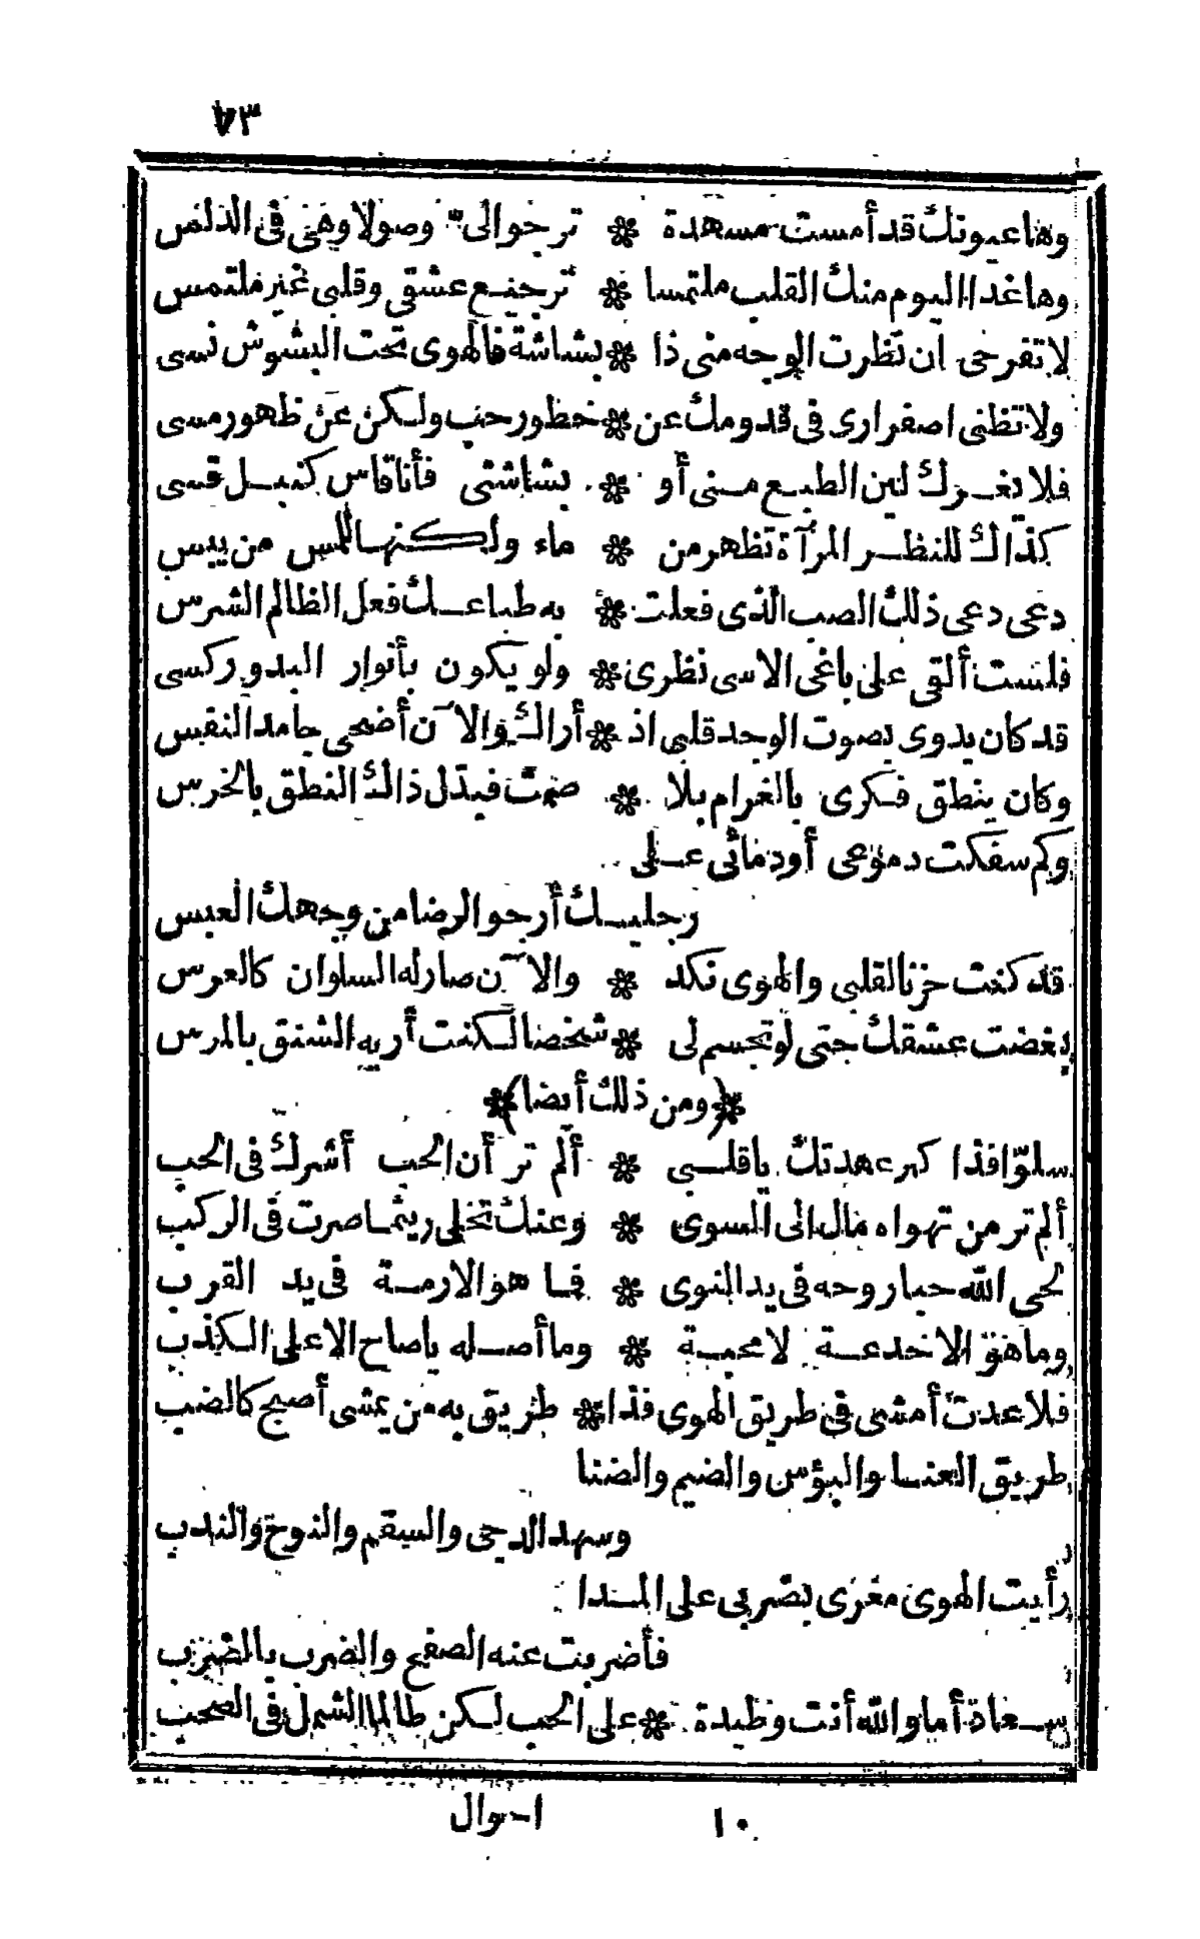 ٧٣
وها عيونك قد أمست مسهدة * ترجو الى وصولا وهى فى الدلس
وها غدا اليوم منك القلب ملتمسا * ترجيع عشقى وقلبى غير ملتمس
لا تفرحى ان نظرت الوجه منى ذا * بشاشة فالهوى تحت البشوش نسى
ولا تظنى اصفرارى فى قدومك عن * خطور حب ولكن عن ظهور مسى
فلا يغررك لين الطبع منى أو * بشاشتى فأنا قاس كنبل قسى
كذاك للنظر المرآة تظهر من * ماء ولكنها للمس من يبس
دعى دعى ذلك الصب الذى فعلت * به طباعك فعل الظالم الشرس
فلست ألقى على باغى الاسى نظرى * ولو يكون بأنوار البدور كسى
قد كان يدوى بصوت الوجد قلبى اذ * أراك والآن أضحى جامد النفس
وكان ينطق فكرى بالغرام بلا * صمت فبدل ذاك النطق بالخرس
وكم سفكت دموعى أو دمائى على
رجليك أرجو الرضا من وجهك العبس
قد كنت حزنا لقلبى والهوى نكد * والآن صار له السلوان كالعرس
بغضت عشقك حتى لو تجسم لى * شخصا لكنت أريه الشنق بالمرس
﴿ومن ذلك أيضا﴾
سلوّا فذا كبر عهدتك يا قلبى * ألم تر أن الحب أشرك فى الحب
ألم تر من تهواه مال الى السوى * وعنك تخلى ريثما صرت فى الركب
لحى الله حبا روحه فى يد النوى * فما هو الا رمة فى يد القرب
وما هو الا خدعة لا محبة * وما أصله يا صاح الا على الكذب
فلا عدت أمشى فى طريق الهوى فذا * طريق به من يمشى أصبح كالضب
طريق العنا والبؤس والضيم والضنا
وسهد الدجى والسقم والنوح والندب
رأيت الهوى مغرى بضربى على المدا
فأضربت عنه الصفح والضرب بالضرب
سعاد أما والله أنت وظيدة * على الحب لكن طالما الشمل فى الصحب
١٠ ا - وال